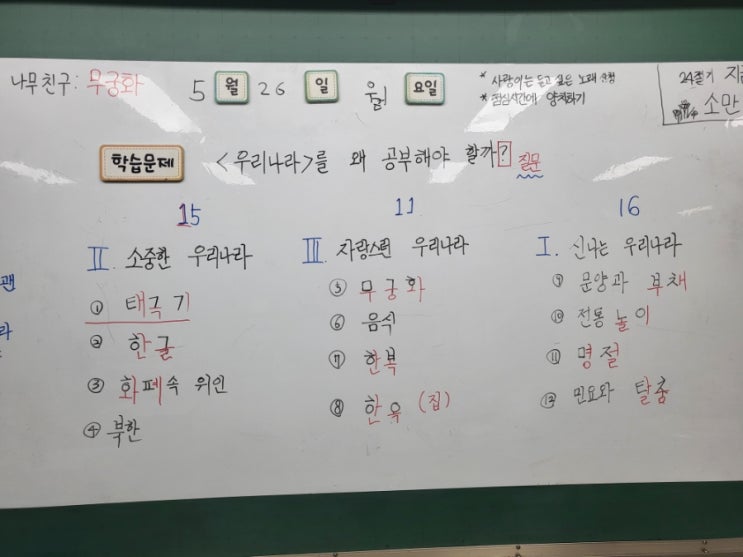 나무친구: 무궁화
5 월 26 일 월 요일
* 사랑이는 듣고 싶은 노래 신청
* 점심시간에 양치하기
24절기 지금
소만
학습문제 <우리나라>를 왜 공부해야 할까?
질문
15
Ⅱ. 소중한 우리나라
① 태극기
② 한글
③ 화폐속 위인
④ 북한
11
Ⅲ. 자랑스런 우리나라
⑤ 무궁화
⑥ 음식
⑦ 한복
⑧ 한옥 (집)
16
Ⅰ. 신나는 우리나라
⑨ 문양과 부채
⑩ 전통 놀이
⑪ 명절
⑫ 민요와 탈춤